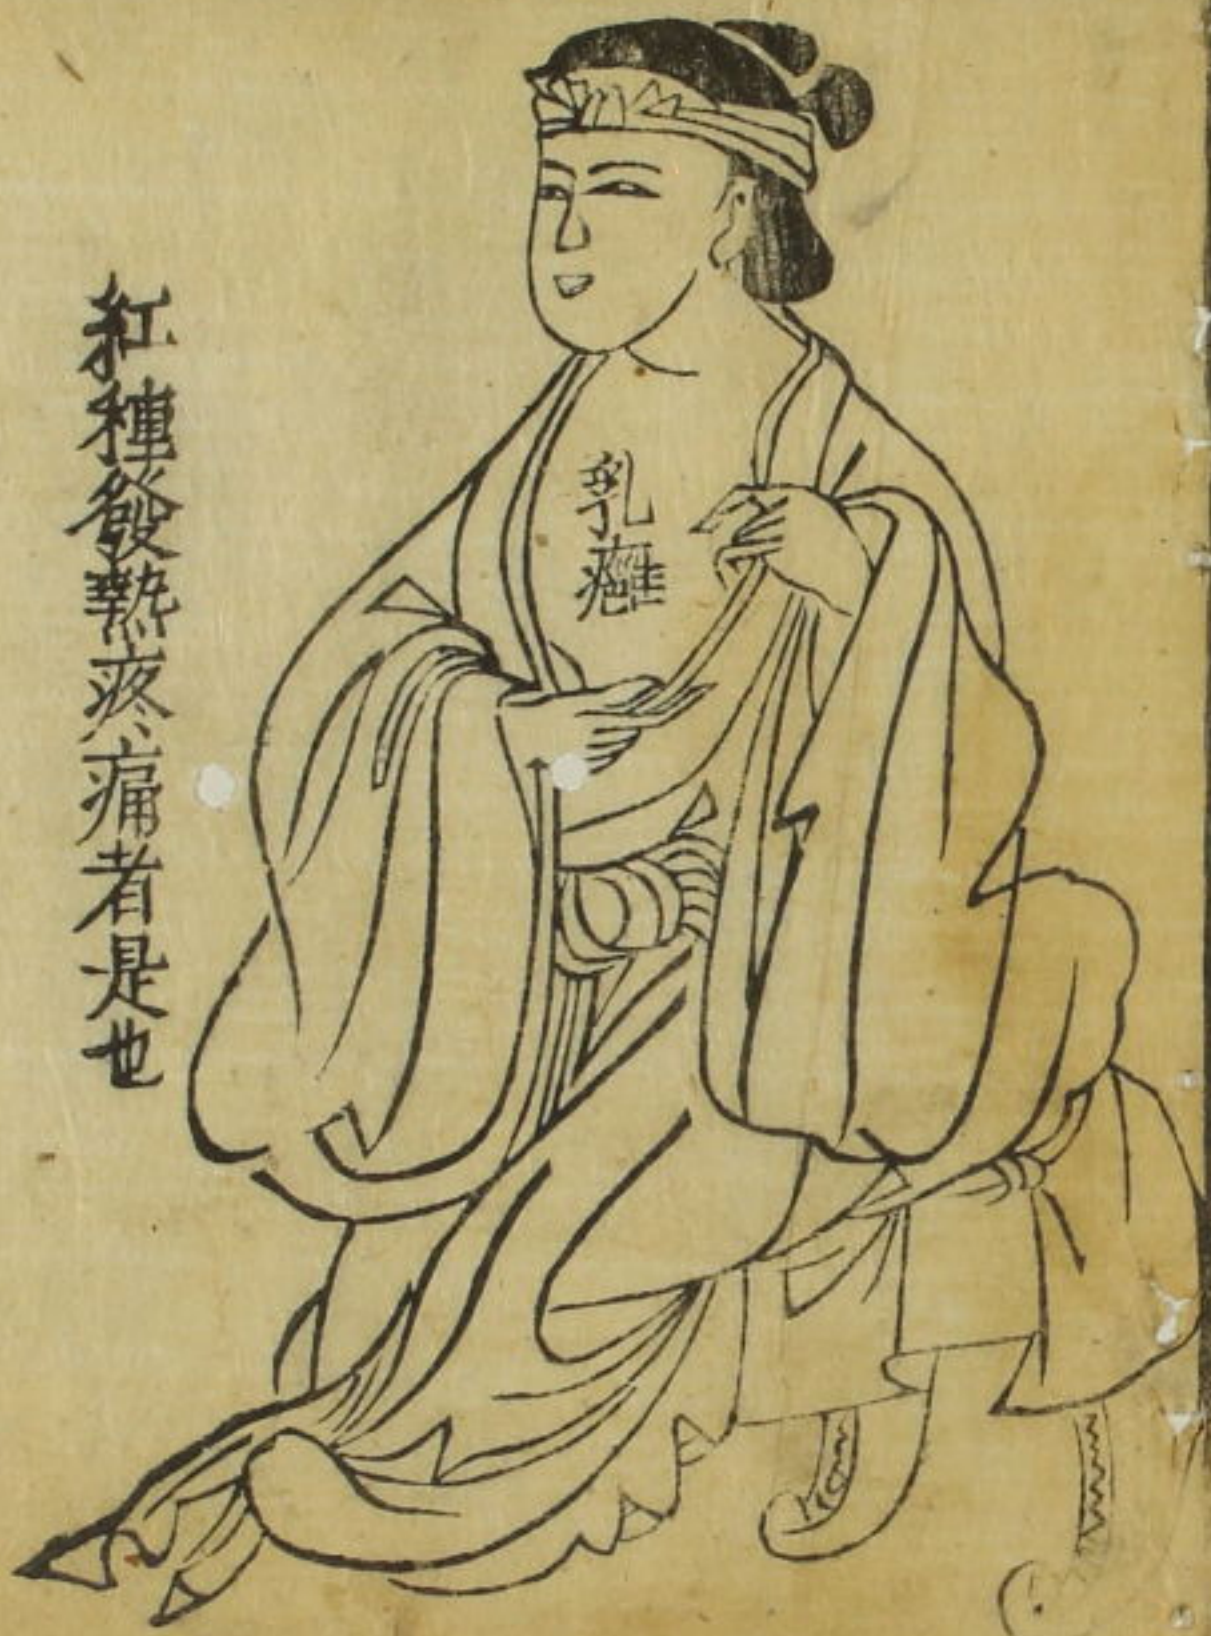 乳癰
紅種發熱疼痛者是也